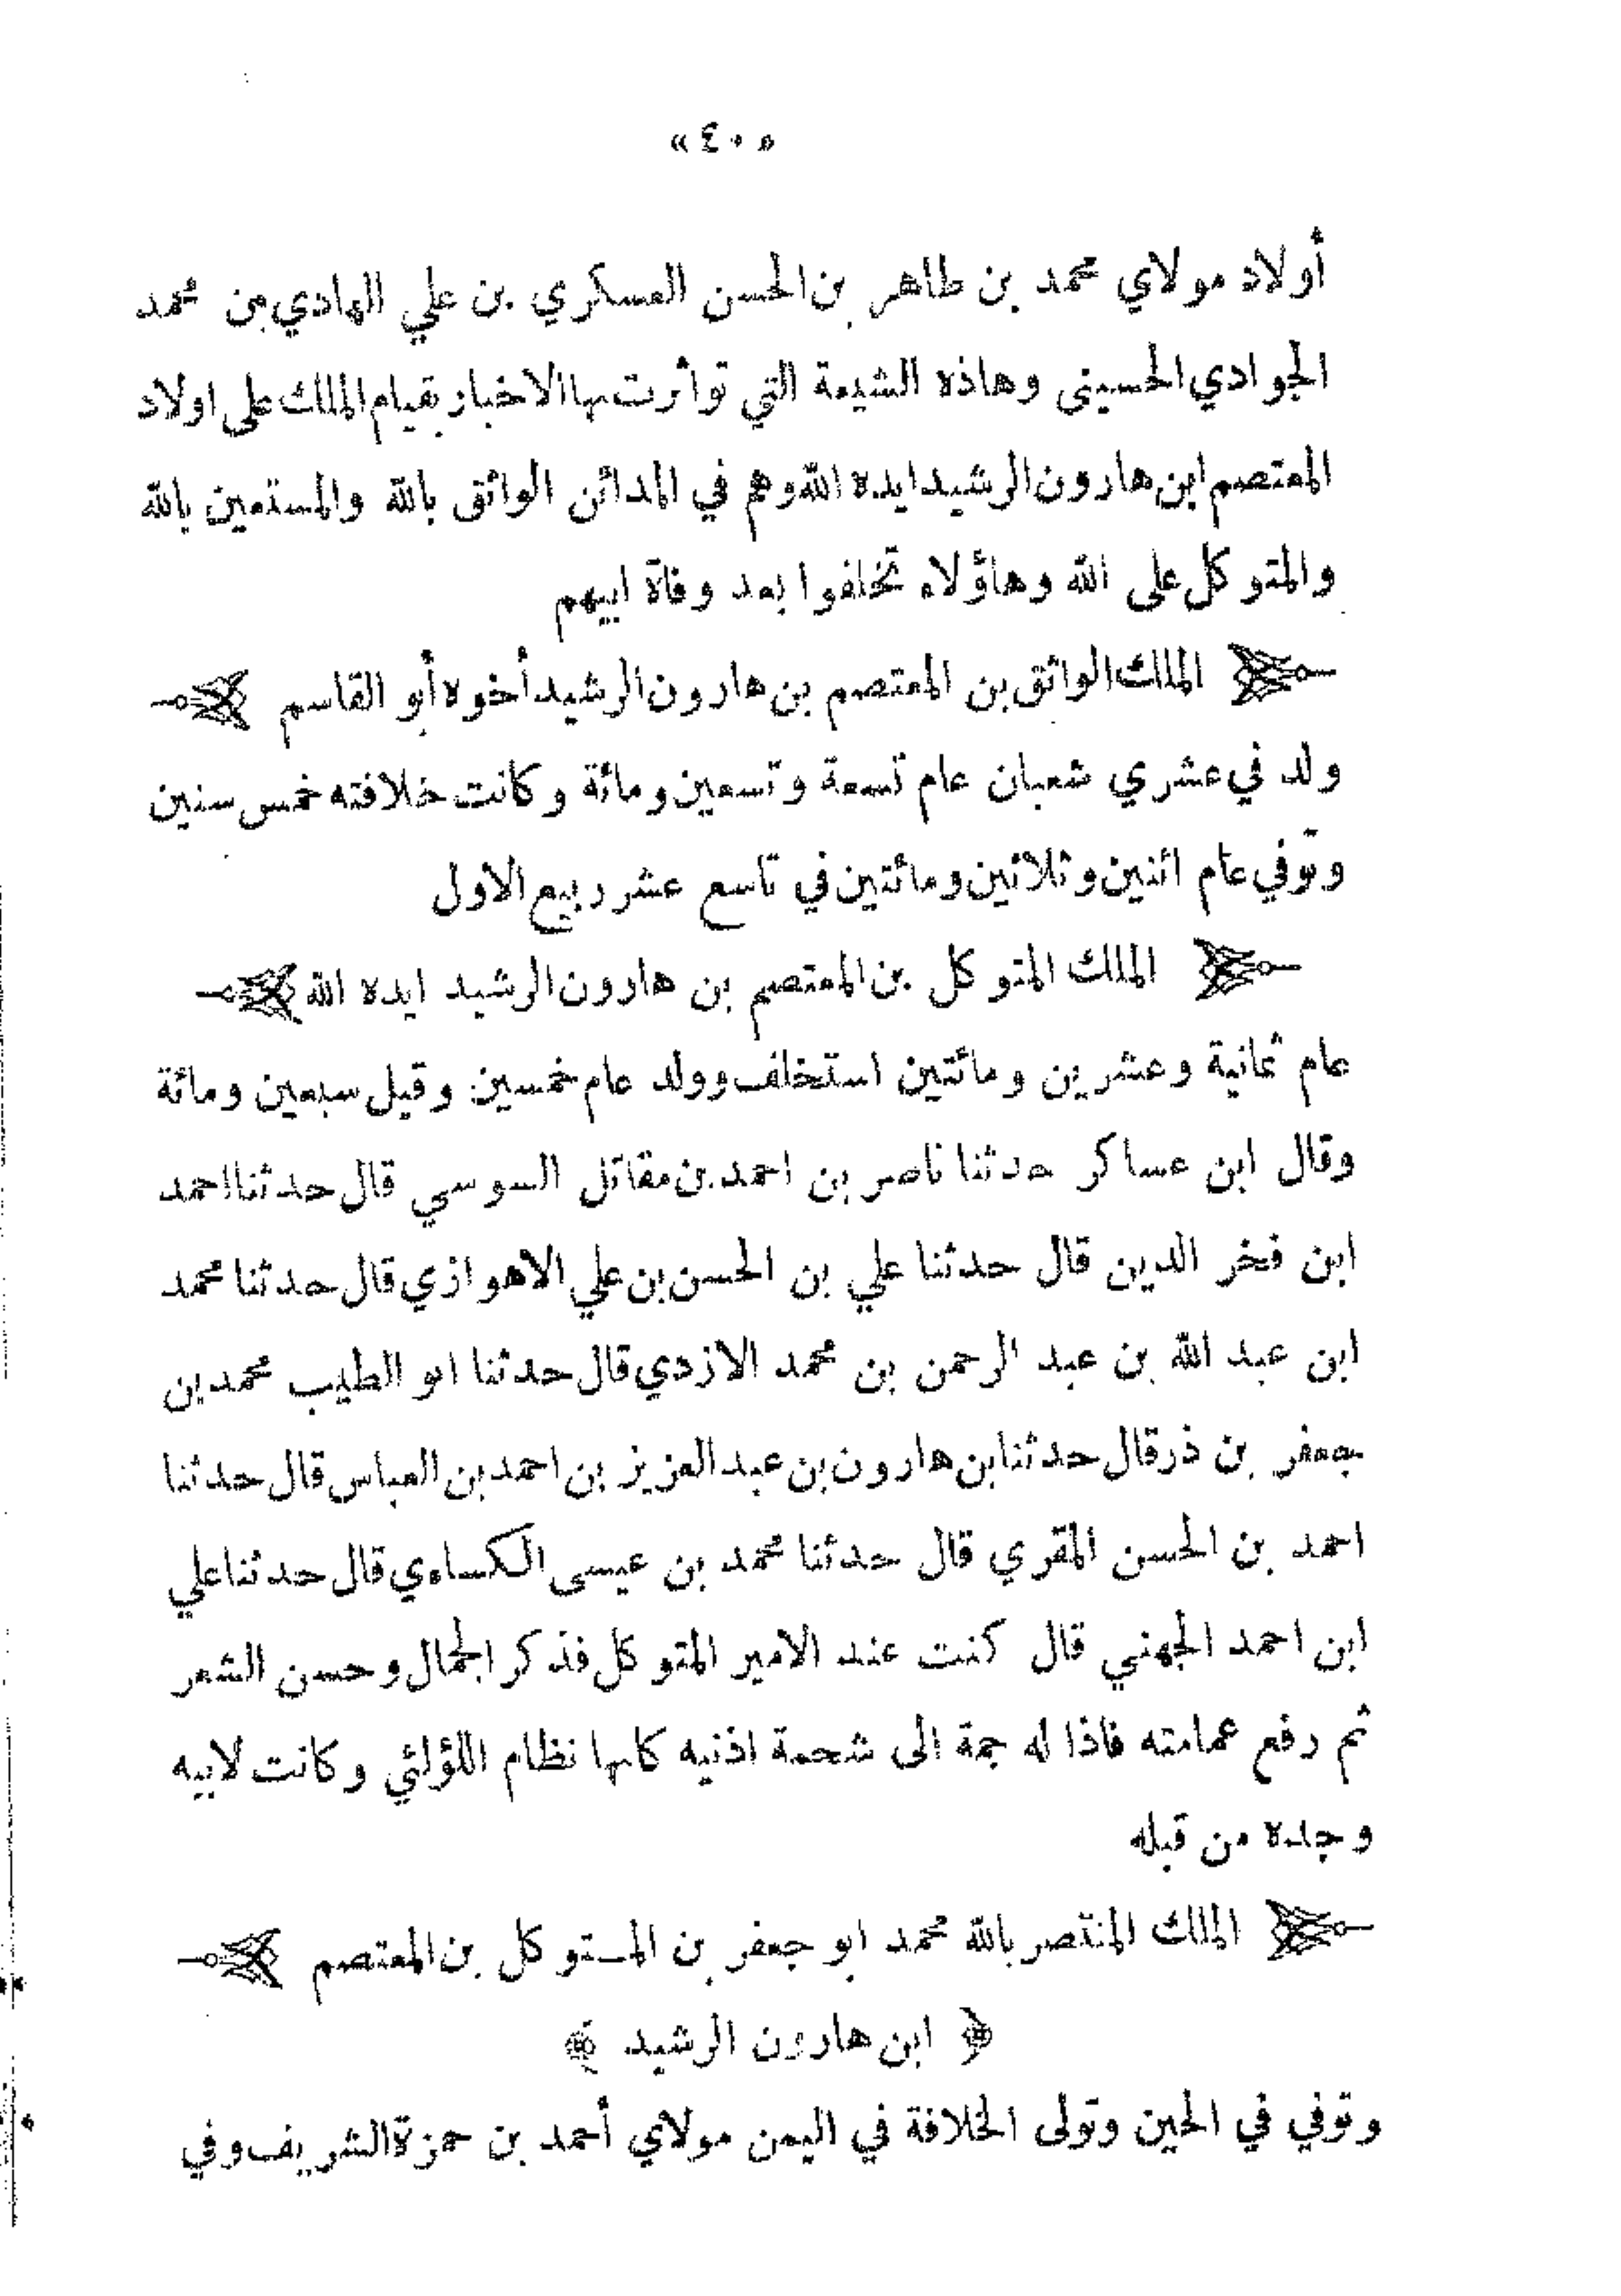 « ٤٠ »
أولاد مولاي محمد بن طاهر بن الحسن العسكري بن علي الهادي بن محمد
الجوادي الحسيني وهاذه الشيعة التي تواترت بها الاخبار بقيام الملك على اولاد
المعتصم ابن هارون الرشيد ايده الله وهم في المدائن الواثق بالله والمستعين بالله
والمتوكل على الله وهاؤلاء تخلفوا بعد وفاة ابيهم
الملك الواثق بن المعتصم بن هارون الرشيد أخوه أبو القاسم
ولد في عشري شعبان عام تسعة وتسعين ومائة وكانت خلافته خمس سنين
وتوفي عام اثنين وثلاثين ومائتين في تاسع عشر ربيع الاول
الملك المتوكل بن المعتصم بن هارون الرشيد ايده الله
عام ثمانية وعشرين ومائتين استخلف وولد عام خمسين وقيل سبعين ومائة
وقال ابن عساكر حدثنا ناصر بن احمد بن مقاتل السوسي قال حدثنا احمد
ابن فخر الدين قال حدثنا علي بن الحسن بن علي الاهوازي قال حدثنا محمد
ابن عبد الله بن عبد الرحمن بن محمد الازدي قال حدثنا ابو الطيب محمد بن
جعفر بن ذر قال حدثنا بن هارون بن عبد العزيز بن احمد بن العباس قال حدثنا
احمد بن الحسن المقري قال حدثنا محمد بن عيسى الكساءي قال حدثنا علي
ابن احمد الجهني قال كنت عند الامير المتوكل فذكر الجمال وحسن الشعر
ثم رفع عمامته فاذا له جمة الى شحمة اذنيه كانها نظام اللؤلئي وكانت لابيه
وجده من قبله
الملك المنتصر بالله محمد ابو جعفر بن المستوكل بن المعتصم
﴿ ابن هارون الرشيد ﴾
وتوفي في الحين وتولى الخلافة في اليمن مولاي أحمد بن حمزة الشريف وفي